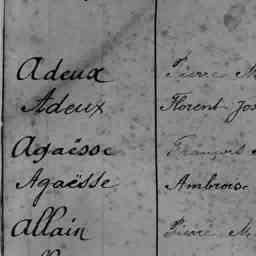 Adeux Pierre M
Adeux Florent Jos
Agaësse François
Agaësse Ambroise
Allain Pierre M